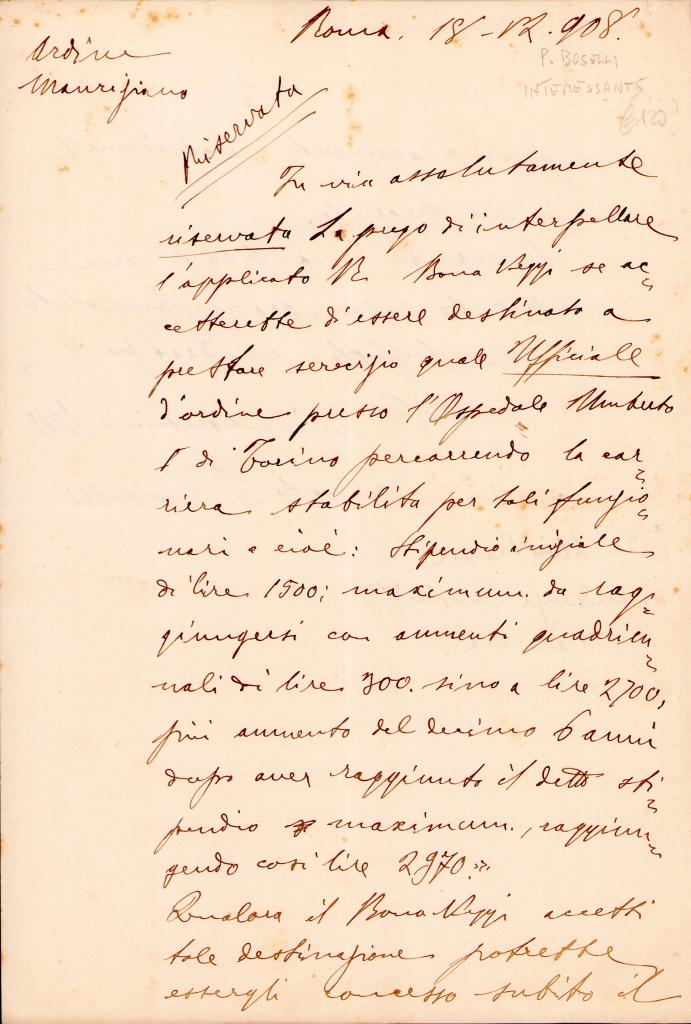 Roma, 18-12.908.
Ordine
Mauriziano
P. BOSELLI
INTERESSANTE
Riservata
In via assolutamente
riservata La prego di interpellare
l'applicato Bona Veggi se ac=
cetterebbe d'essere destinato a
prestare servizio quale Ufficiale
d'ordine presso l'Ospedale Umberto
I di Torino percorrendo la car=
riera stabilita per tali funzio=
nari e cioè: stipendio iniziale
di lire 1500; maximum da rag=
giungersi con aumenti quadrien=
nali di lire 300. sino a lire 2700,
più aumento del decimo 6 anni
dopo aver raggiunto il detto sti=
pendio maximum, raggiun=
gendo così lire 2970.
Qualora il Bona Veggi accetti
tale destinazione potrebbe
essergli concesso subito il